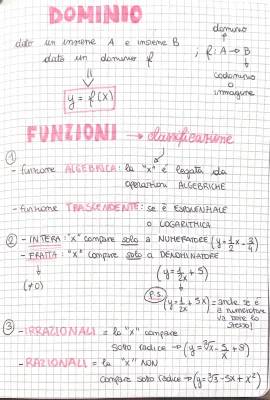 DOMINIO
dominio
dato un insieme A e insieme B ; f: A → B
dato un dominio f
codominio
o
immagine
y = f(x)
FUNZIONI → classificazione
① - funzione ALGEBRICA: la "x" è legata da
operazioni ALGEBRICHE
- funzione TRASCENDENTE: se è ESPONENZIALE
o LOGARITMICA
② - INTERA: "x" compare solo a NUMERATORE (y = 1/2 x - 3/4)
- FRATTA: "x" compare solo a DENOMINATORE
(≠0)
(y = 1/2x + 5)
P.S.
(y = 1/2x + 5x) = anche se è
a numeratore
va bene lo
stesso!
③ - IRRAZIONALI = la "x" compare
sotto radice → (y = ∛x - 5/x + 8)
- RAZIONALI = la "x" NON
compare sotto radice → (y = ∛5 - 5x + x²)